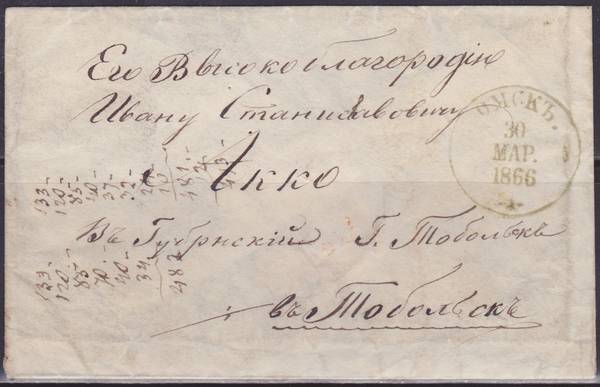 Его Высокоблагородію
Ивану Станиславовичу
Якко
Въ Губернскій Г. Тобольскъ
въ Тобольскъ
ОМСКЪ.
30
МАР.
1866
1
133-
120-
85-
133-
120-
85-
70-
40-
34
482